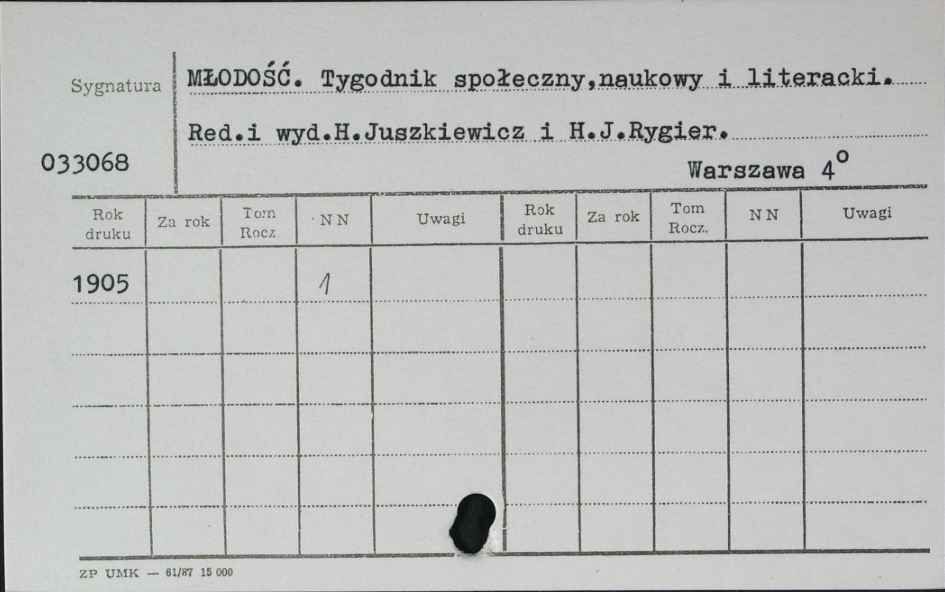 Sygnatura
MŁODOŚĆ. Tygodnik społeczny,naukowy i literacki.
Red.i wyd.H.Juszkiewicz i H.J.Rygier.
033068
Warszawa 4º
Rok druku Za rok Tom Rocz NN Uwagi Rok druku Za rok Tom Rocz. NN Uwagi
1905 1
ZP UMK — 61/87 15 000